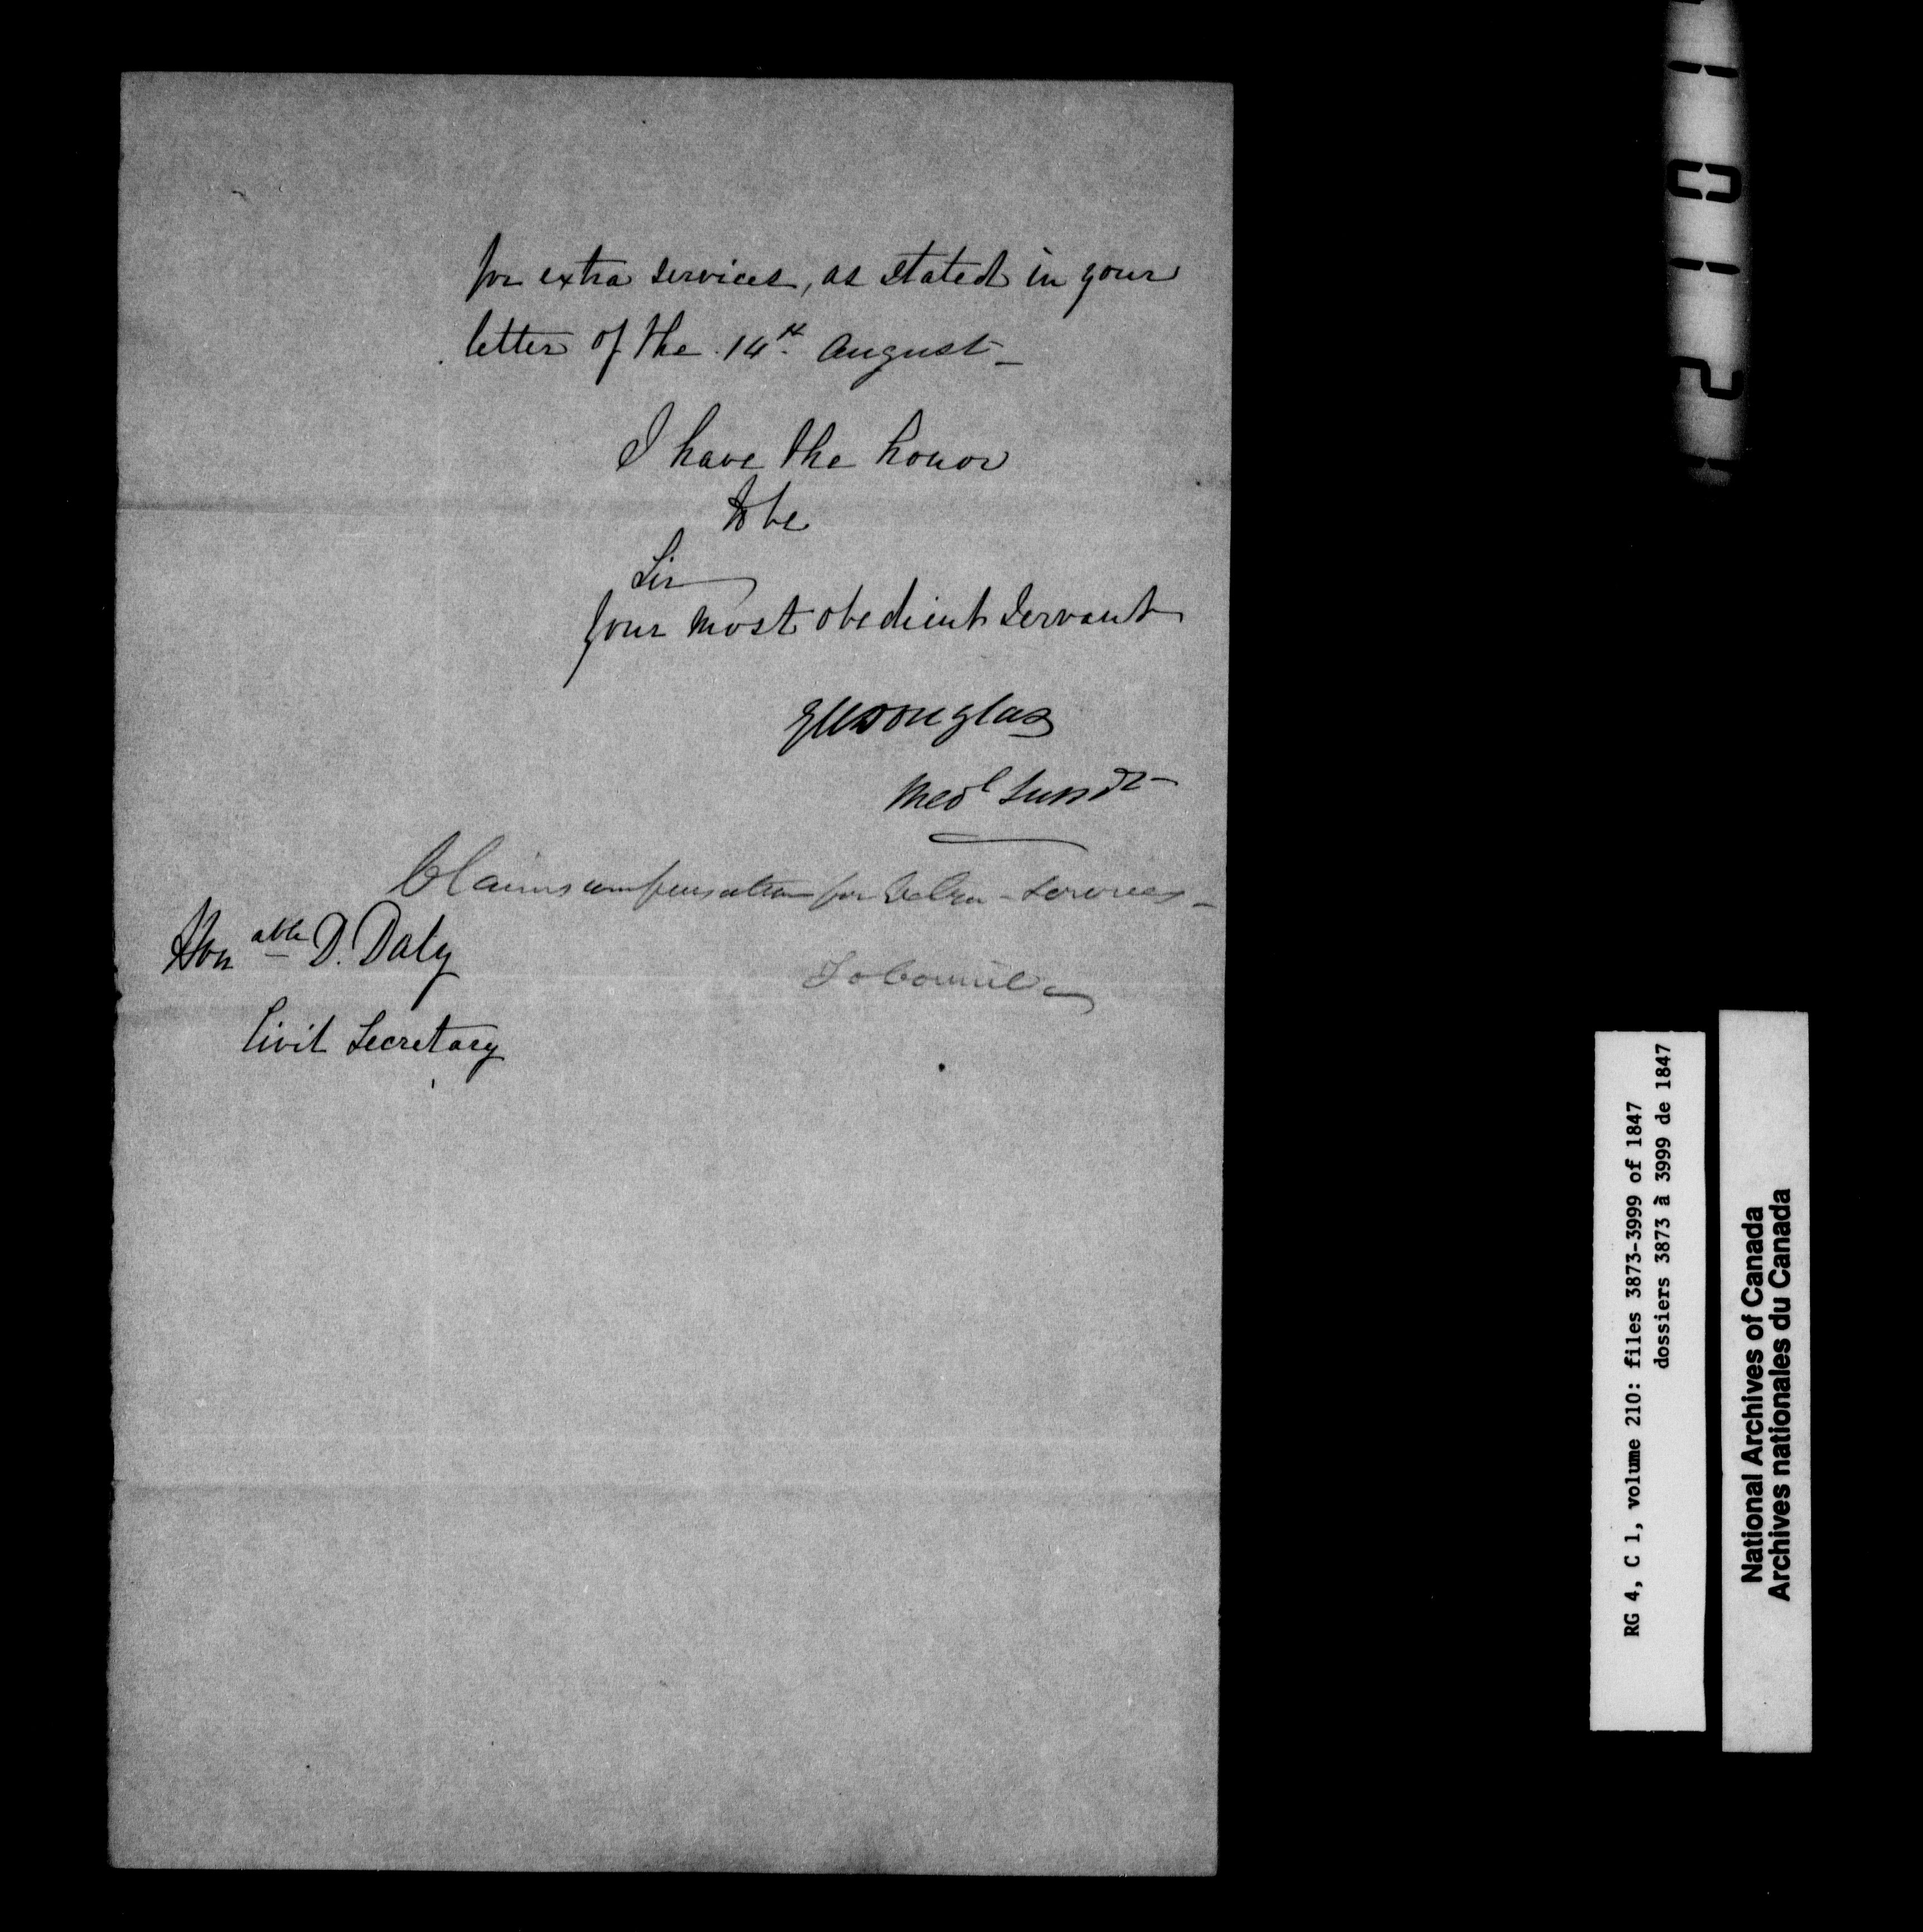 for extra services, as stated in your
letter of the 14th. August_
I have the honor
to be
Sir
Your most obedient Servant
GMDouglas
Medl Supdt
Claims compensation for Extra-Services_
Honable D. Daly
To Council
Civil Secretary
RG 4, C 1, volume 210: files 3873-3999 of 1847
dossiers 3873 à 3999 de 1847
National Archives of Canada
Archives nationales du Canada